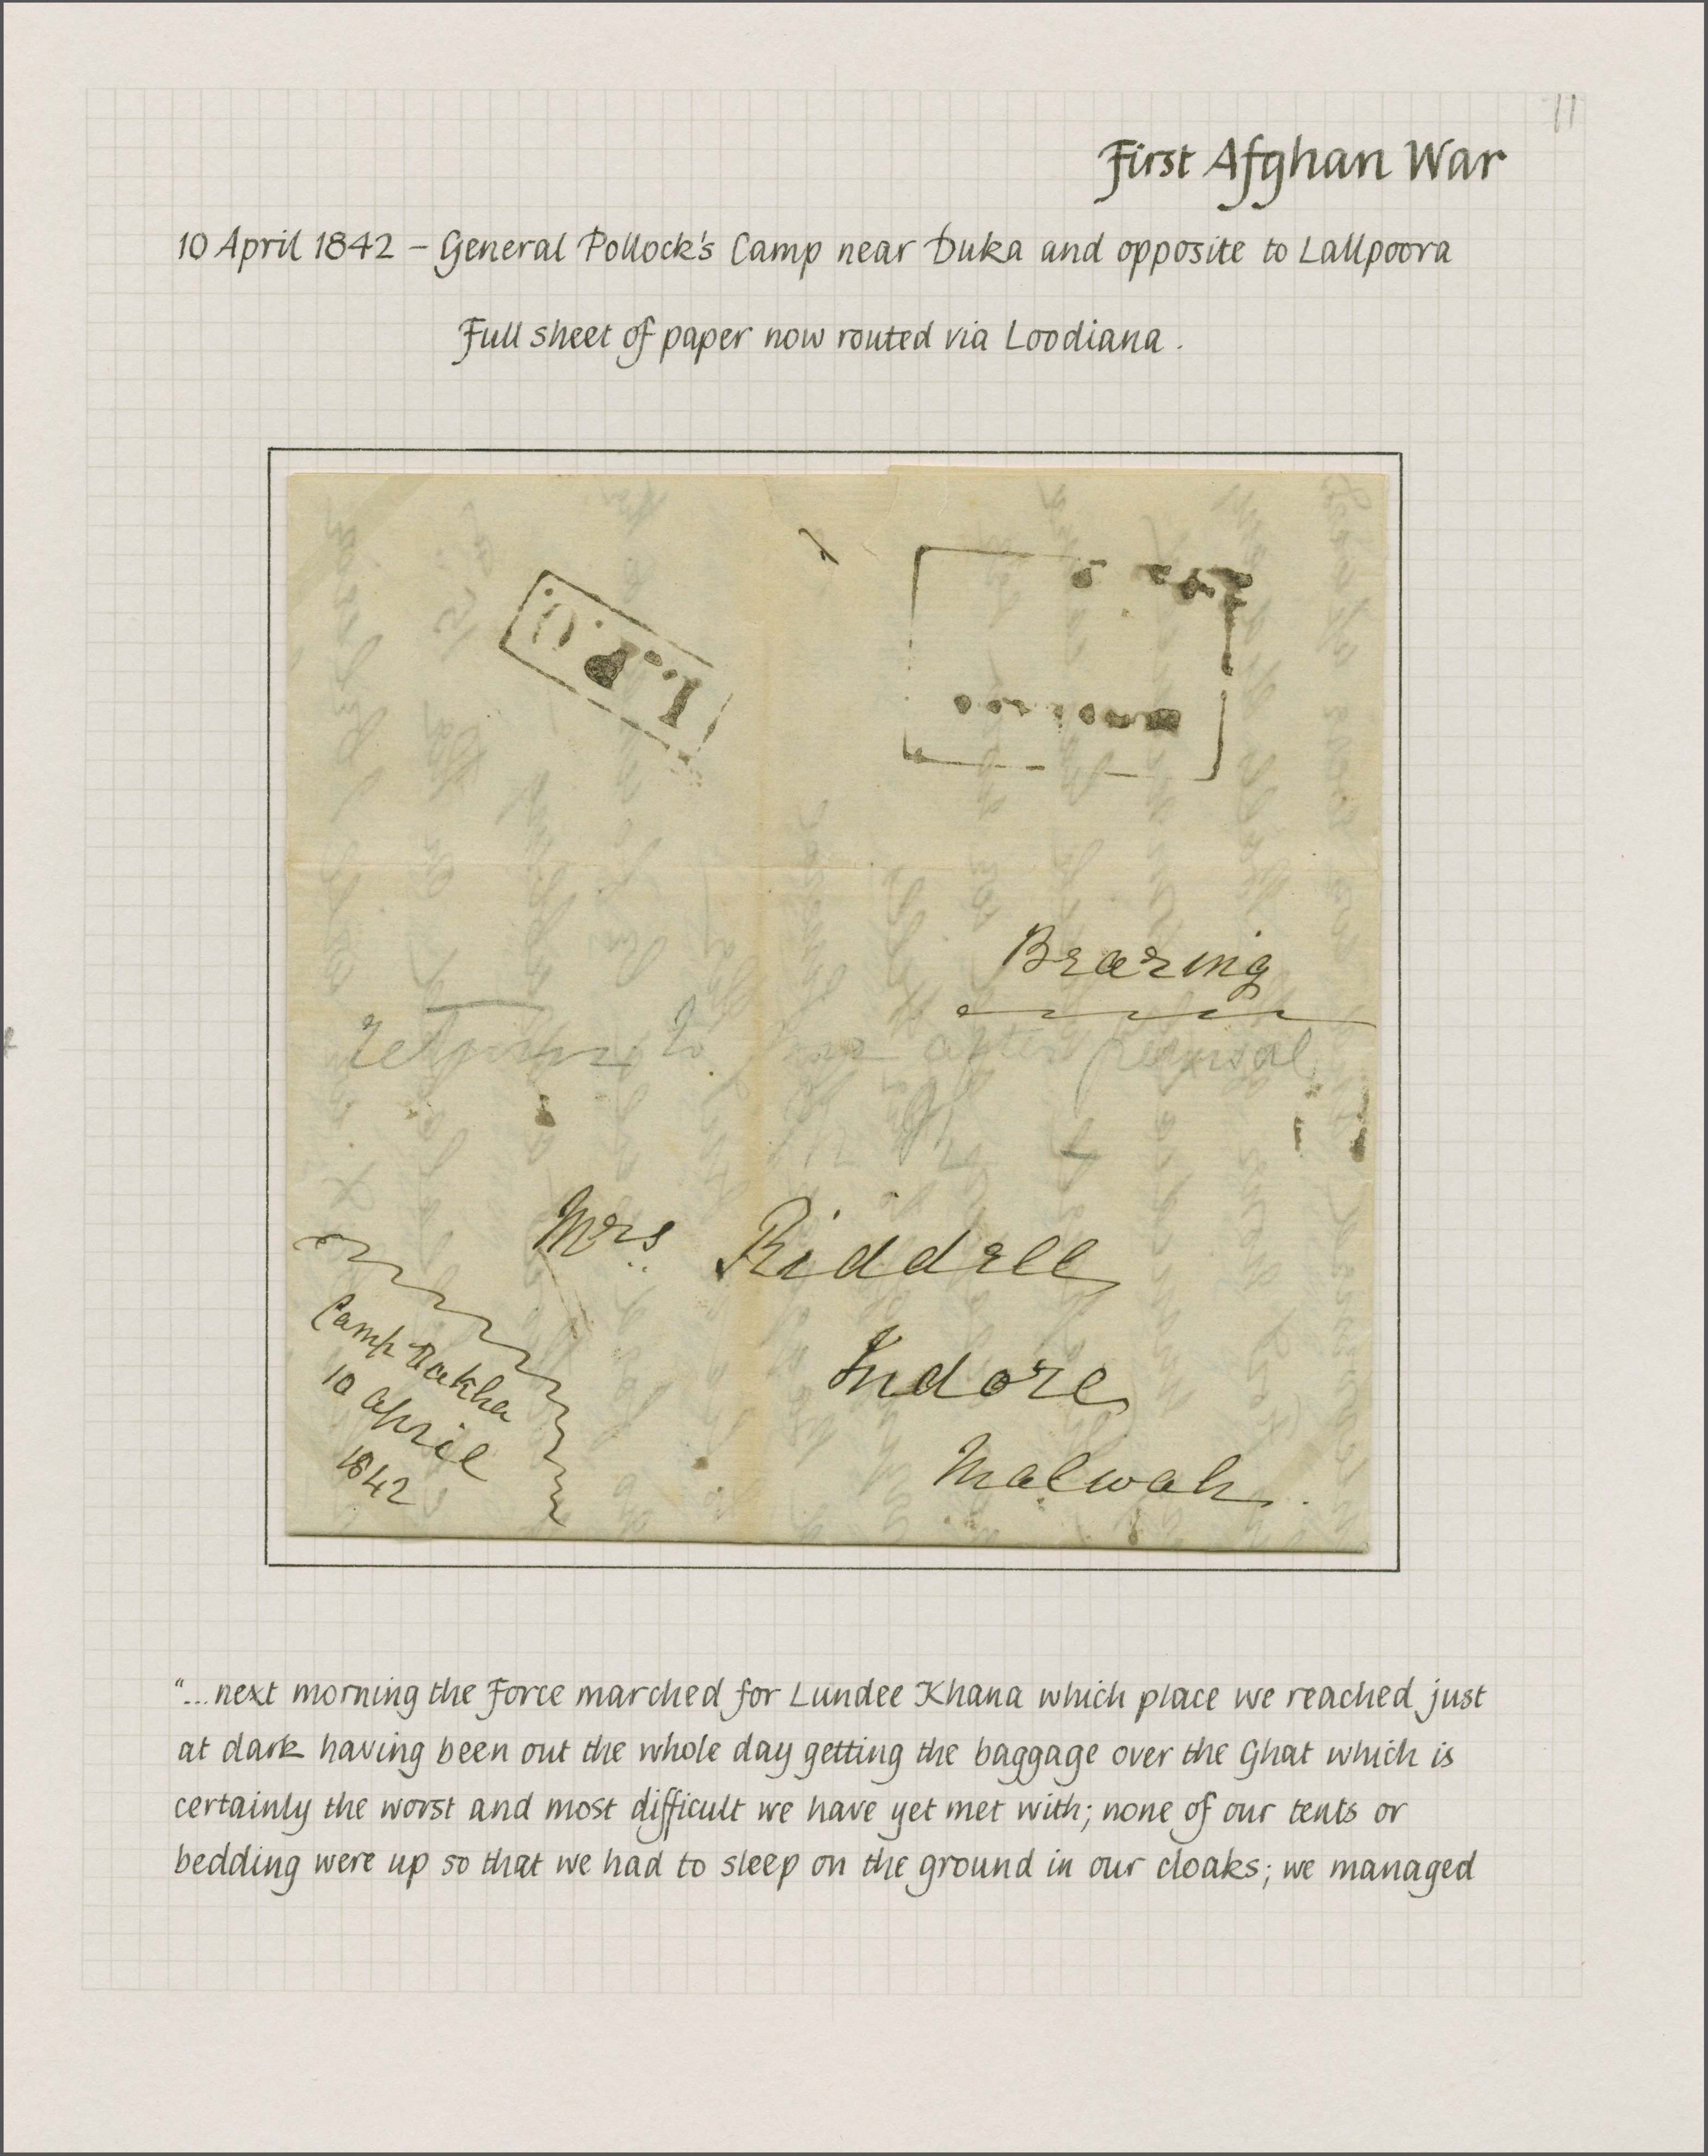 11
First Afghan War
10 April 1842 – General Pollock's Camp near Duka and opposite to Lallpoora
Full sheet of paper now routed via Loodiana.
Bearing
Return to me after perusal
Mrs Riddell
Indore
Malwah.
Camp Dakha
10 April
1842
"...next morning the Force marched for Lundee Khana which place we reached just
at dark having been out the whole day getting the baggage over the Ghat which is
certainly the worst and most difficult we have yet met with; none of our tents or
bedding were up so that we had to sleep on the ground in our cloaks; we managed